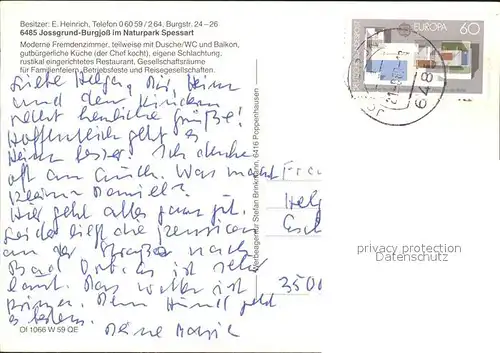 Besitzer: E. Heinrich, Telefon 0 60 59 / 2 64, Burgstr. 24 – 26
6485 Jossgrund-Burgjoß im Naturpark Spessart
Moderne Fremdenzimmer, teilweise mit Dusche/WC und Balkon,
gutbürgerliche Küche (der Chef kocht), eigene Schlachtung,
rustikal eingerichtetes Restaurant, Gesellschaftsräume
für Familienfeiern, Betriebsfeste und Reisegesellschaften.
EUROPA 60
648
Liebe Helga, Dir, Heinz
und den Kindern
recht herzliche Grüße!
Hoffentlich geht es
Heinz besser. Ich denke
oft an Euch. Was macht
Kleine Daniel?
Hier geht alles ganz gut.
Leider liegt die Pension
an der Straße nach
Bad Orb, es ist sehr
laut. Das Wetter ist
prima. Dem Hund geht
es bestens.
Deine
Werbeagentur Stefan Brinkmann, 6416 Poppenhausen
Helg
3500
privacy protection
Datenschutz
Of 1066 W 59 QE